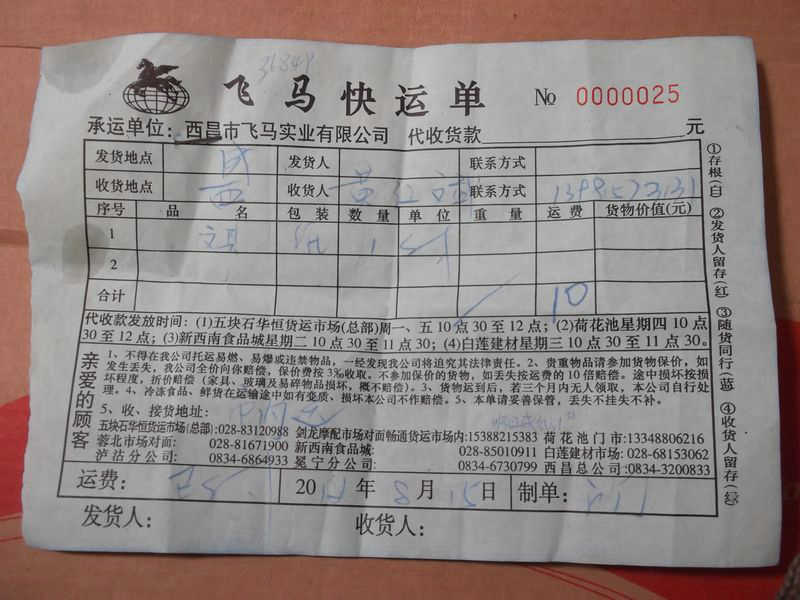 36849
飞马快运单 № 0000025
承运单位：西昌市飞马实业有限公司 代收货款 元
发货地点 成 发货人 联系方式
收货地点 西 收货人 联系方式
序号 品名 包装 数量 单位 重量 运费 货物价值(元)
1
2
合计 10
代收款发放时间：(1)五块石华恒货运市场(总部)周一、五10点30至12点；(2)荷花池星期四10点
30至12点；(3)新西南食品城星期二10点30至11点30；(4)白莲建材星期三10点30至11点30。
亲爱的顾客
1、不得在我公司托运易燃、易爆或违禁物品，一经发现我公司将追究其法律责任。2、贵重物品请参加货物保价，如
发生丢失，我公司全价向你赔偿，保价费按3‰收取。不参加保价的货物，如丢失按运费的10倍赔偿。途中损坏按
损坏程度，折价赔偿（家具、玻璃及易碎物品损坏，概不赔偿）。3、货物运到后，若三个月内无人领取，本公司自行处
理。4、冷冻食品、鲜货在运输途中如有变质、损坏本公司不作赔偿。5、本单请妥善保管，丢失不挂失不补。
5、收、接货地址：
五块石华恒货运市场(总部):028-83120988 剑龙摩配市场对面畅通货运市场内:15388215383 荷花池门市:13348806216
蓉北市场对面: 028-81671900 新西南食品城: 028-85010911 白莲建材市场: 028-68153062
泸沽分公司: 0834-6864933 冕宁分公司: 0834-6730799 西昌总公司:0834-3200833
运费： 20 14 年 8 月 15 日 制单：
发货人： 收货人：
①存根(白) ②发货人留存(红) ③随货同行(蓝) ④收货人留存(绿)